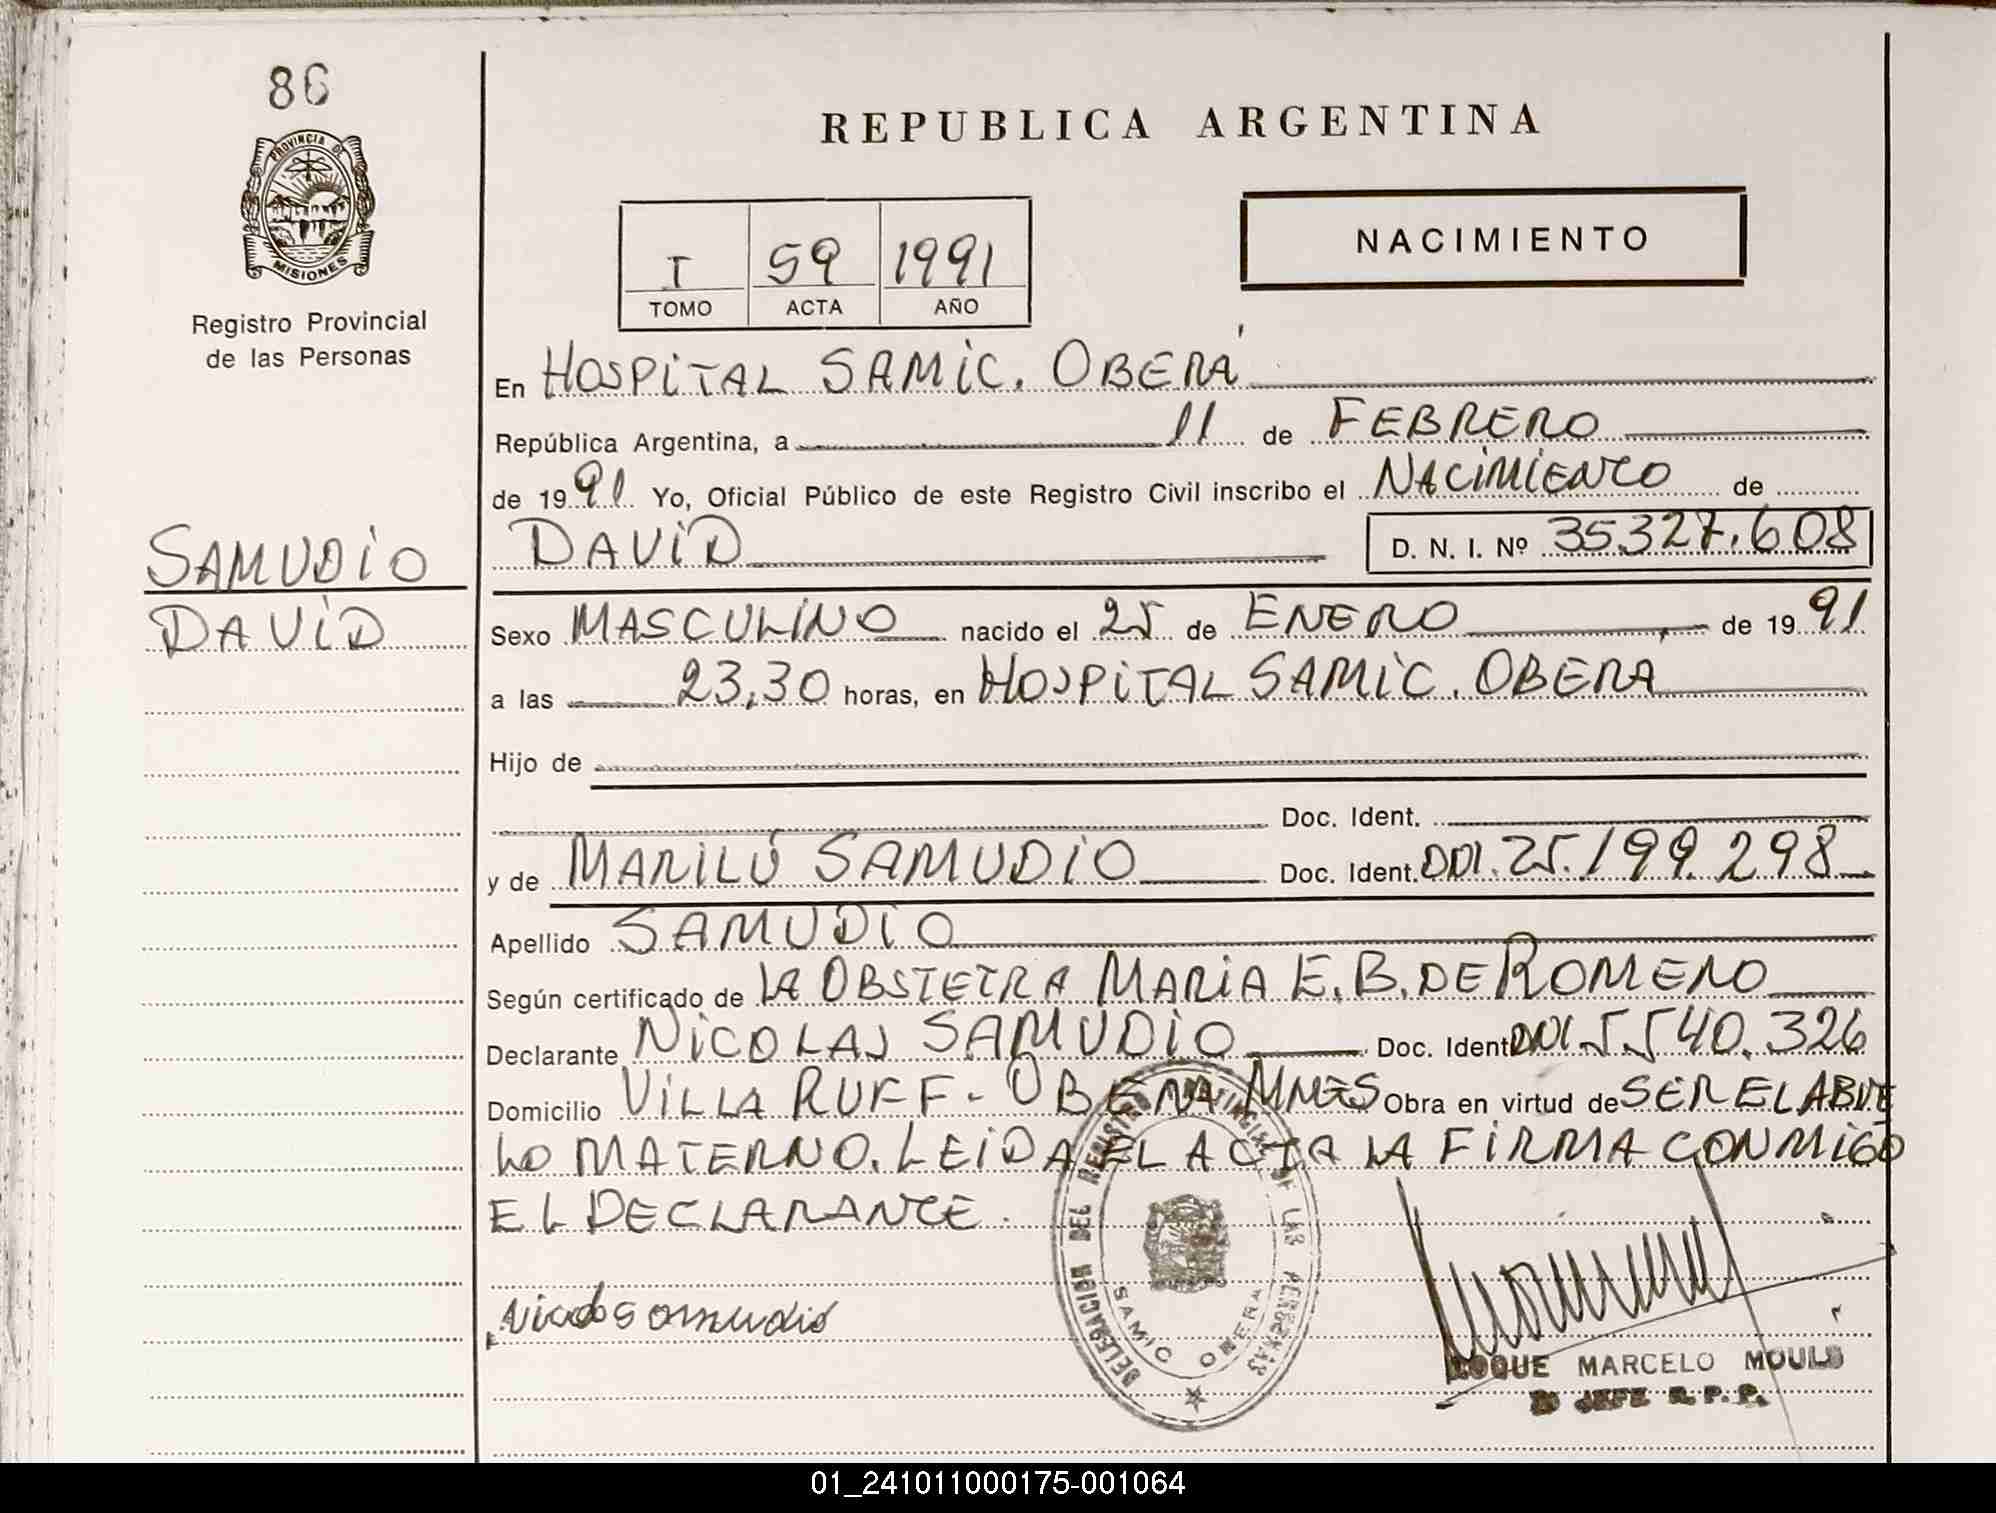 86
PROVINCIA DE
MISIONES
Registro Provincial
de las Personas
REPUBLICA ARGENTINA
I 59 1991
TOMO ACTA AÑO
NACIMIENTO
En HOSPITAL SAMIC. OBERÁ
República Argentina, a 11 de FEBRERO
de 1991 Yo, Oficial Público de este Registro Civil inscribo el NACIMIENTO de
SAMUDIO
DAVID
DAVID D. N. I. Nº 35.327.608
Sexo MASCULINO nacido el 25 de ENERO de 1991
a las 23,30 horas, en HOSPITAL SAMIC. OBERA
Hijo de
Doc. Ident.
y de MARILÚ SAMUDIO Doc. Ident. DNI. 25.199.298
Apellido SAMUDIO
Según certificado de LA OBSTETRA MARIA E. B. DE ROMERO
Declarante NICOLAS SAMUDIO Doc. Ident DNI 5.540.326
Domicilio VILLA RUFF - OBERA MNES Obra en virtud de SER EL ABUE
LO MATERNO. LEIDA EL ACTA LA FIRMA CONMIGO
EL DECLARANTE.
Nicolas samudio
DELEGACION DEL REGISTRO PROVINCIAL DE LAS PERSONAS
SAMIC OBERA
ROQUE MARCELO
JEFE R. P. P.
01_241011000175-001064